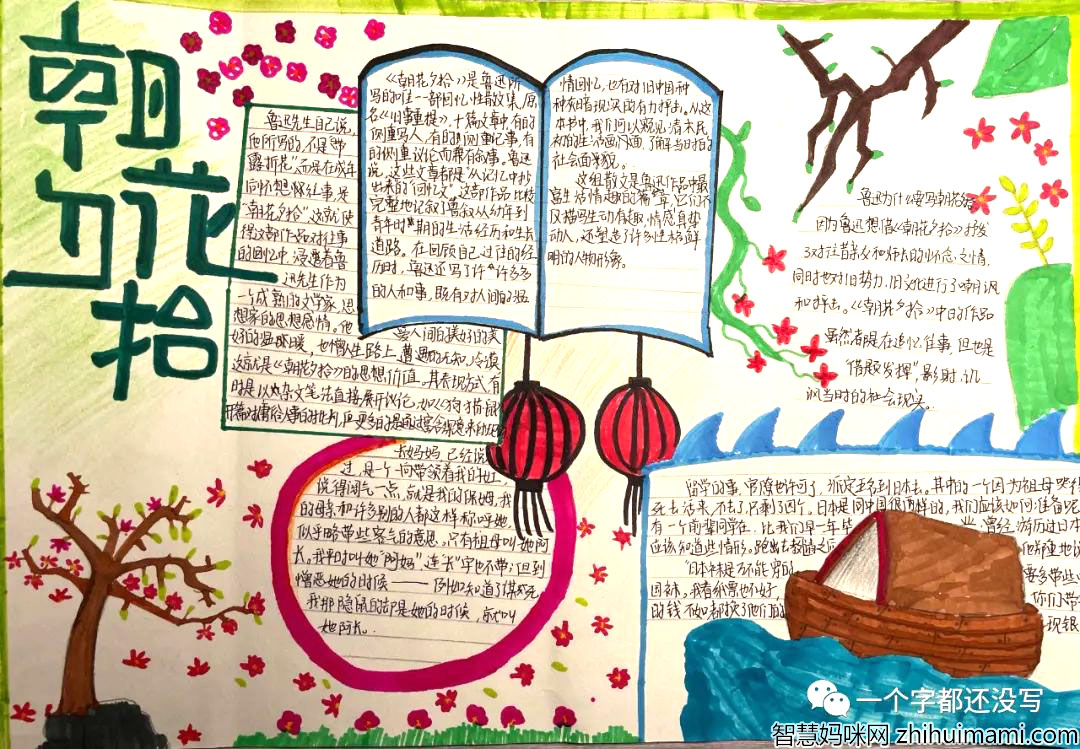 朝花夕拾
鲁迅先生自己说，
他所写的不是"带
露折花"，而是在成年
回忆想 往事是
"朝花夕拾"，这就使
得这部作品对往事
的回忆中，浸透着鲁
迅先生作为
一个成熟的文学家、思
想家的思想感情。他
爱人间的美好的美
好的温 暖，也憎人生路上遭遇的无知，冷漠
这就是《朝花夕拾》的思想价值。其表现方式有
时是以杂文笔法直接展开议论，如《狗·猫·鼠》
《朝花夕拾》是鲁迅所
写的唯一一部回忆性散文集，原
名《旧事重提》，十篇文章中，有的
侧重写人，有的则侧重记事，有
的侧重议论而兼有叙事。鲁迅
说，这些文章都是"从记忆中抄
出来的"回忆文"，这部作品比较
完整地记叙了鲁迅从幼年到
青年时 期的生活经历和生长
道路。在回顾自己过往的经
历时，鲁迅还写了许许多多
的人和事，既有对人间的温
情回忆，也有对旧中国种
种黑暗现状的有力抨击。从这
本书中，我们可以窥见清末民
初的生活画面，了解当时的
社会面貌。
这组散文是鲁迅作品中最
富生活情趣的篇章，它们不
仅描写生动有趣，情感真挚
动人，还塑造了许多性格鲜
明的人物形象。
鲁迅为什么要写朝花夕拾
因为鲁迅想借《朝花夕拾》抒发
对 和师长的怀念之情，
同时也对旧势力，旧文化进行了嘲讽
和抨击。《朝花夕拾》中的作品
虽然都是在追忆往事，但也是
"借题发挥"，影射、讥
讽当时的社会现实。
长妈妈，已经说
过，是一个一向带领着我的女工，
说得阔气一点，就是我的保姆。我
的母亲和许多别的人都这样称呼她，
似乎略带些客气的意思。只有祖母叫她阿
长。我平时叫她"阿妈"，连"长"字也不带；但到
憎恶她的时候——例如知道了谋死
我那隐鼠的却是她的时候，就叫
她阿长。
留学的事，官僚也许可了，派定五名到日本去。其中的一个因为祖母哭得
死去活来，不去了，只剩了四个。日本是同中国很两样的，我们应该如何准备呢
有一个前辈同学在，比我们早一年毕业，曾经游历过日本
应该知道些情形。跑去请教之后 他郑重地说
"日本袜是万不能穿的 要多带些
国袜。我看纸票也不好， 你们带
的钱不如都换了他们的 现银
一个字都还没写
智慧妈咪网 zhihuimami.com